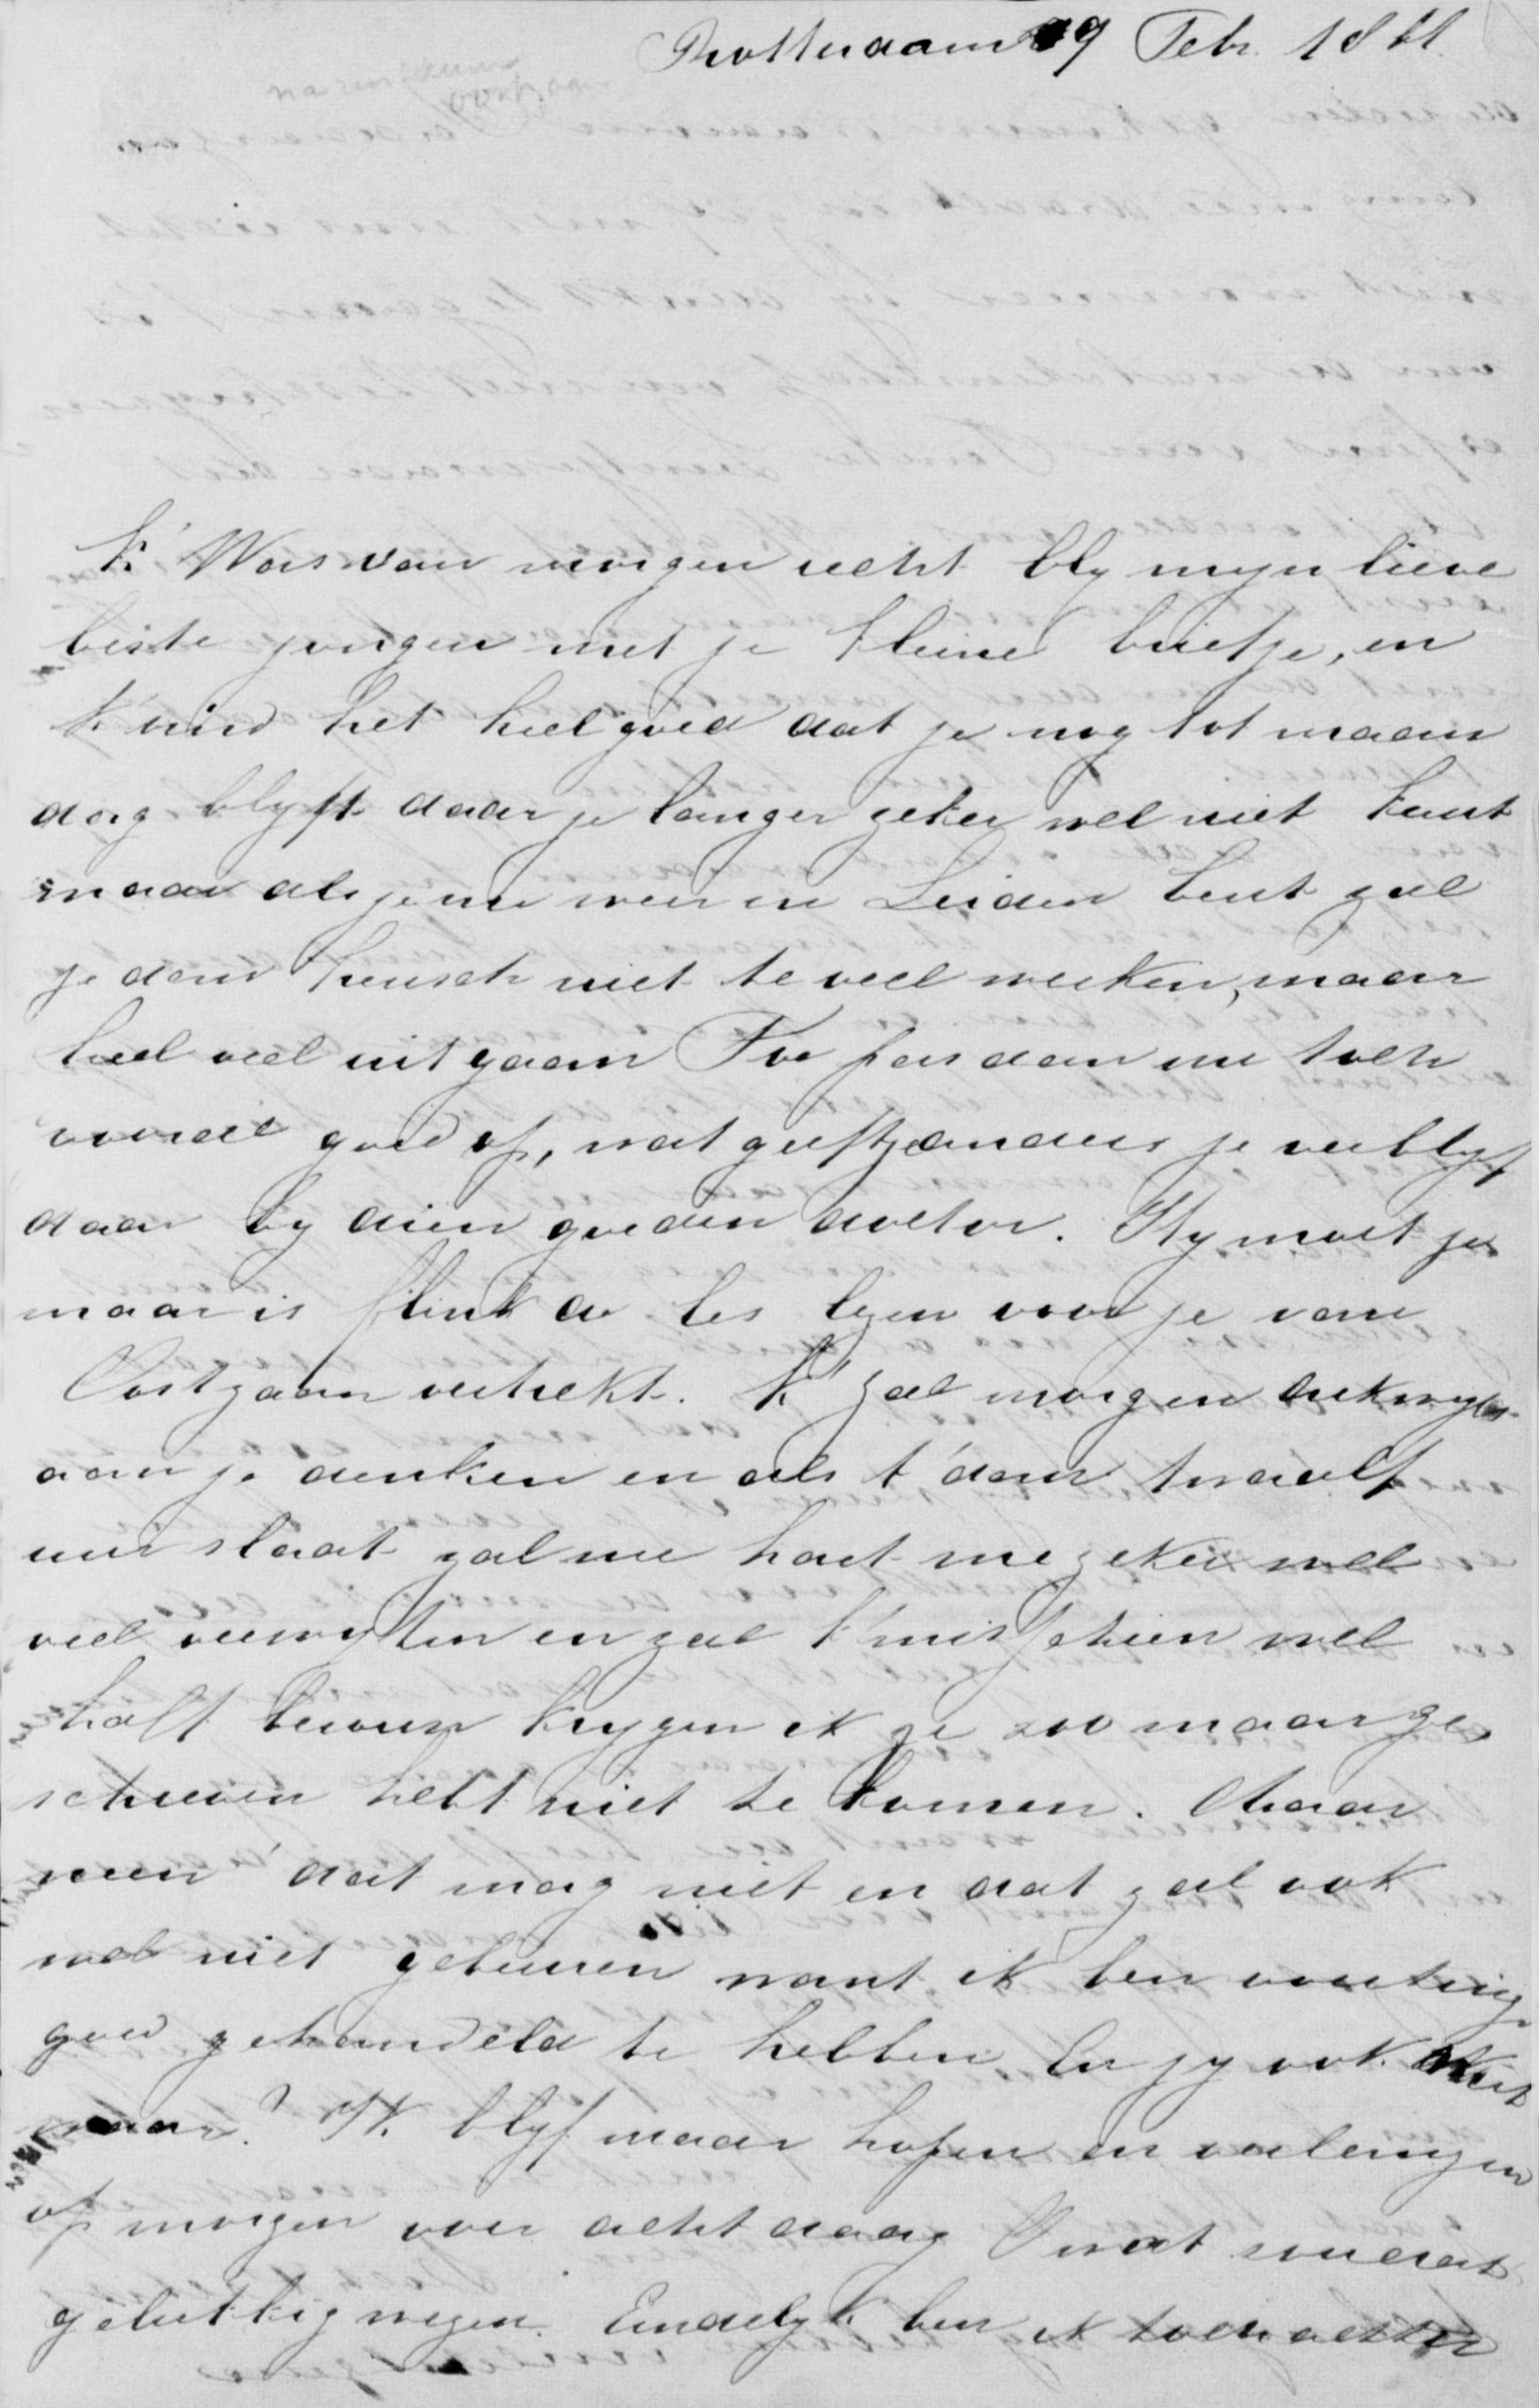 Rotterdam 9 Febr. 18
k' Was van morgen recht bly myn lieve
beste jongen met je kleine briefje, en
k' vind het heel goed dat je nog tot maan
dag blyft daar je langer zeker wel niet kunt
maar als je nu weer in Leiden bent zal
je dan heusch niet te veel werken, maar
heel veel uitgaan Toe pas dan nu toch
vooral goed op, wat geeft je anders je verblyf
daar by dien goeden doctor. Hy moet je
maar is flink de les lezen voor je van
Oostzaan vertrekt. k' Zal morgen dikwyls
aan je denken en als t' dan twaalf
uur slaat zal me hart me zeker wel
veel verwyten en zal k' misschien wel
half berouw krygen ik je zoo maar ge
schreven hebt niet te komen. Maar
neen dat mag niet en dat zal ook
wel niet gebeuren want ik ben overtuigd
goed gehandeld te hebben. En jy ook niet
waar? Ik blyf maar hopen en verlangen
op morgen over acht daag O wat zou dat
gelukkig wezen. Eindelyk ben ik toch achter